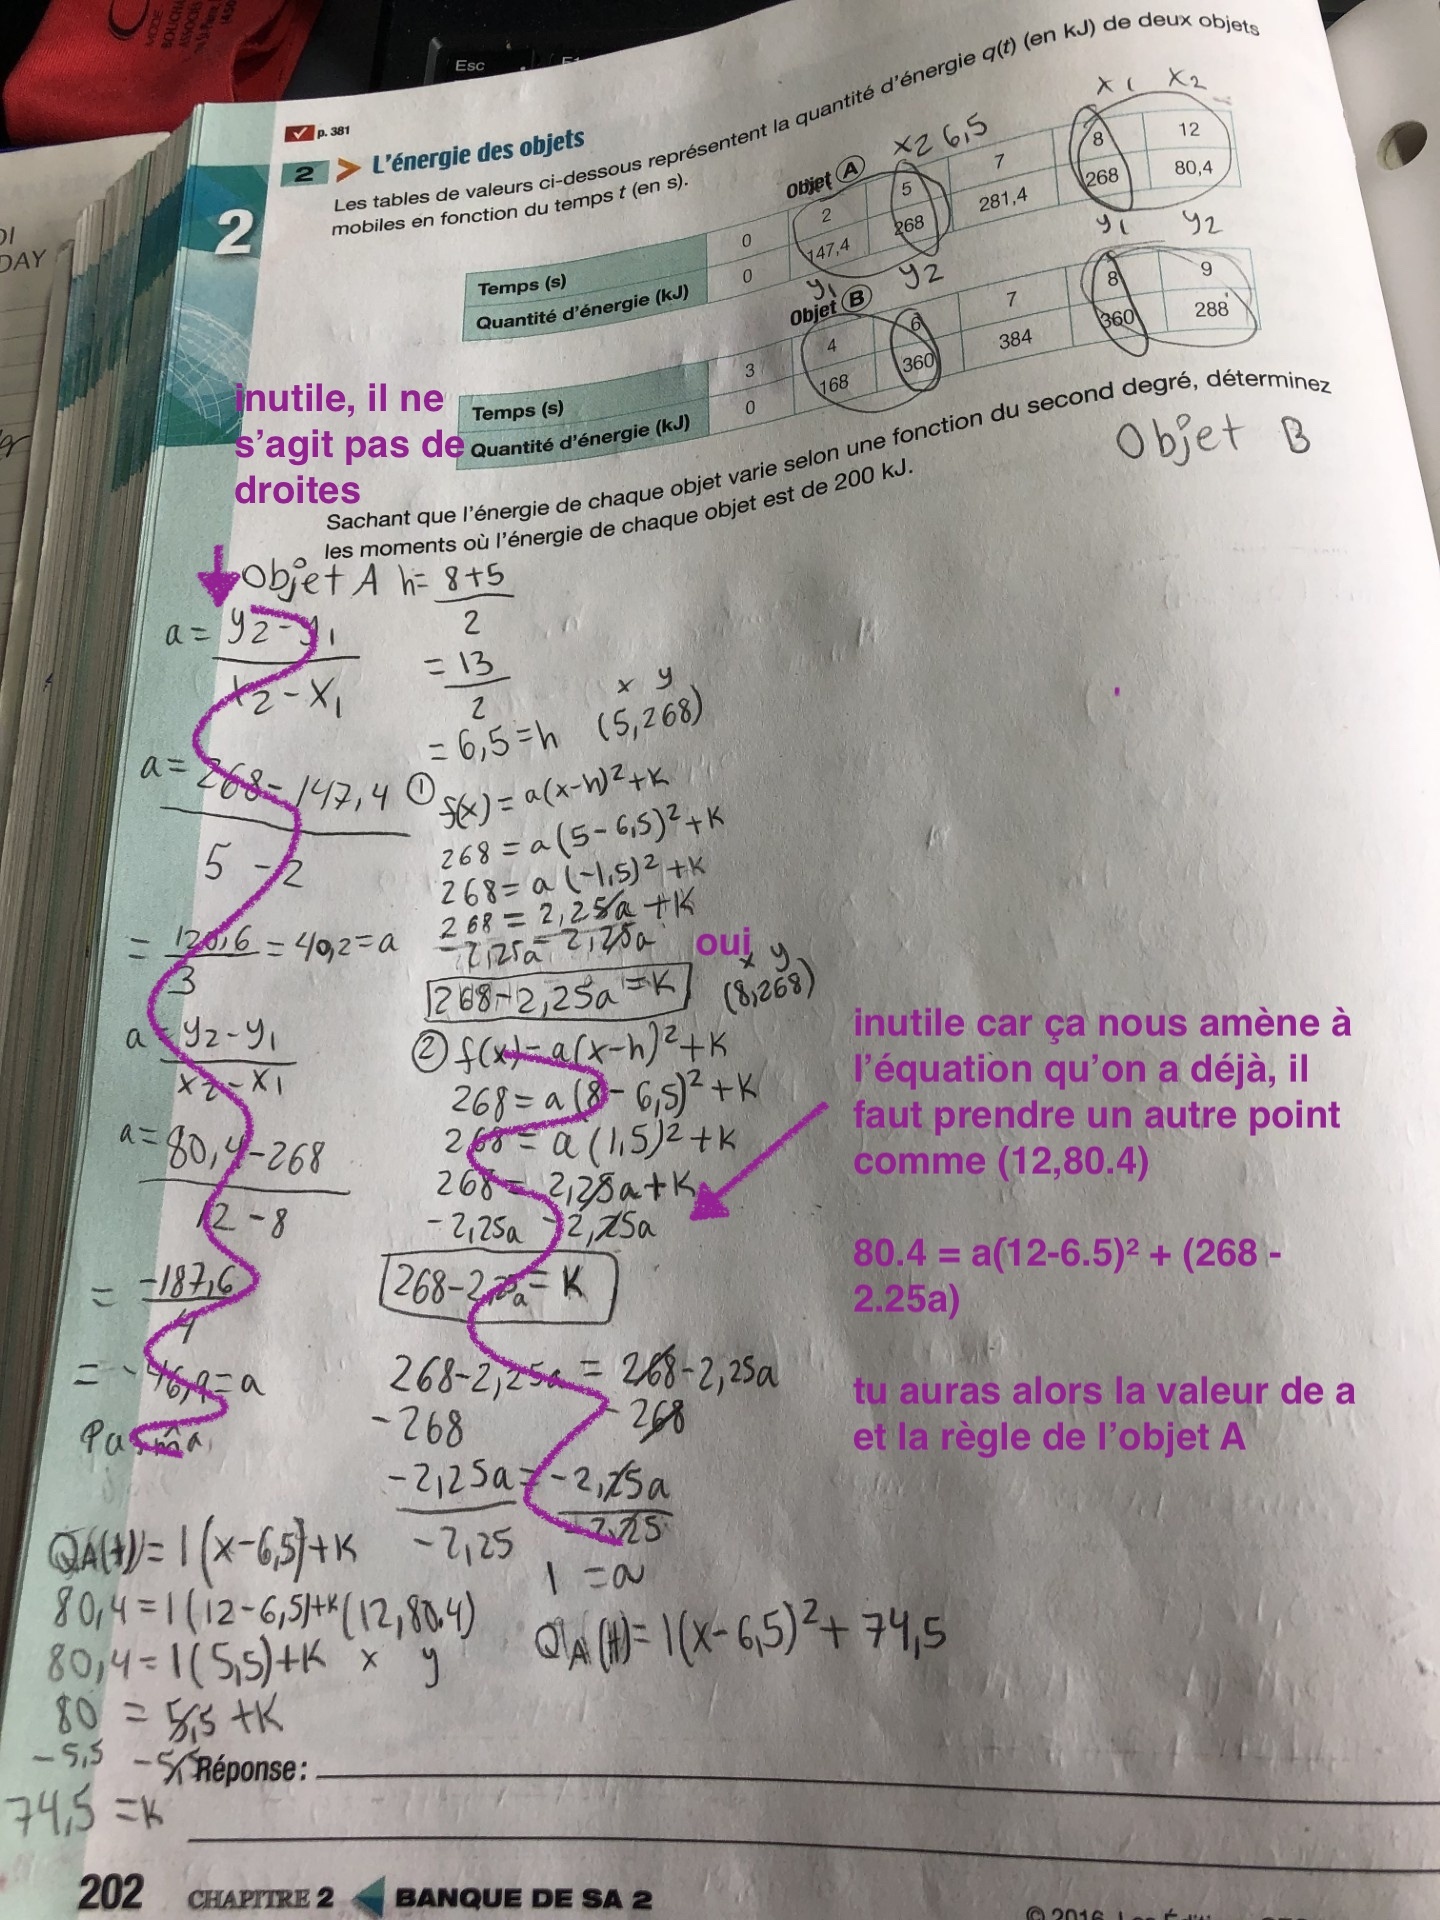 Esc
p. 381
2 > L'énergie des objets
Les tables de valeurs ci-dessous représentent la quantité d'énergie q(t) (en kJ) de deux objets
mobiles en fonction du temps t (en s).
2
x2 6,5
x1 x2
Objet A
Temps (s) 0 2 5 7 8 12
Quantité d'énergie (kJ) 0 147,4 268 281,4 268 80,4
y1 y2 y1 y2
Objet B
Temps (s) 3 4 6 7 8 9
Quantité d'énergie (kJ) 0 168 360 384 360 288
Sachant que l'énergie de chaque objet varie selon une fonction du second degré, déterminez
les moments où l'énergie de chaque objet est de 200 kJ.
Objet B
inutile, il ne
s'agit pas de
droites
Objet A
a = y2 - y1
x2 - x1
a = 268 - 147,4
5 - 2
= 120,6 = 40,2 = a
3
a = y2 - y1
x2 - x1
a = 80,4 - 268
12 - 8
= -187,6
4
= -46,9 = a
h = 8+5
2
= 13
2
= 6,5 = h
x y
(5,268)
① f(x) = a(x-h)² + K
268 = a(5 - 6,5)² + K
268 = a(-1,5)² + K
268 = 2,25a + K
-2,25a - 2,25a
268 - 2,25a = K
oui
x y
(8,268)
② f(x) = a(x-h)² + K
268 = a(8 - 6,5)² + K
268 = a(1,5)² + K
268 = 2,25a + K
-2,25a - 2,25a
268 - 2,25a = K
268 - 2,25a = 268 - 2,25a
-268 - 268
-2,25a = -2,25a
-2,25 -2,25
1 = a
QA(t) = 1(x-6,5)² + 74,5
inutile car ça nous amène à
l'équation qu'on a déjà, il
faut prendre un autre point
comme (12,80.4)
80.4 = a(12-6.5)² + (268 -
2.25a)
tu auras alors la valeur de a
et la règle de l'objet A
QA(t) = 1(x-6,5)+K
80,4 = 1(12-6,5)+K (12,80.4)
80,4 = 1(5,5)+K x y
80 = 5,5 + K
-5,5 -5,5
74,5 = K
Réponse :
202 CHAPITRE 2 BANQUE DE SA 2
© 2016